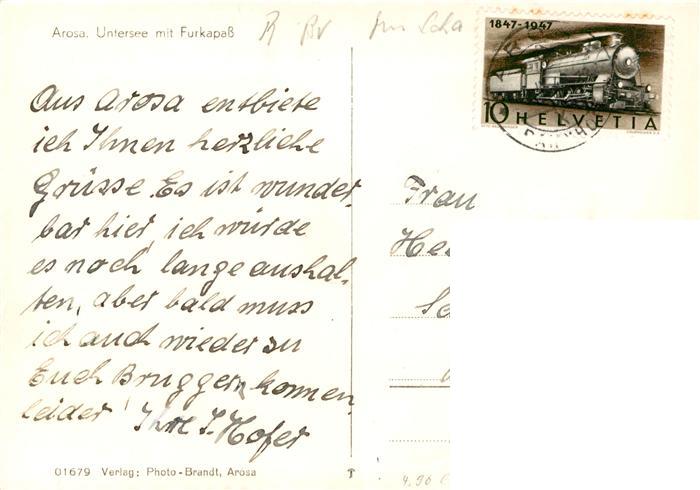 Arosa. Untersee mit Furkapaß
1847-1947
10 HELVETIA
Aus Arosa entbiete
ich Ihnen herzliche
Grüsse. Es ist wunder-
bar hier, ich würde
es noch lange aushal-
ten, aber bald muss
ich auch wieder zu
Euch Bruggern kommen,
leider! Ihre I. Hofer
Frau
01679 Verlag: Photo-Brandt, Arosa